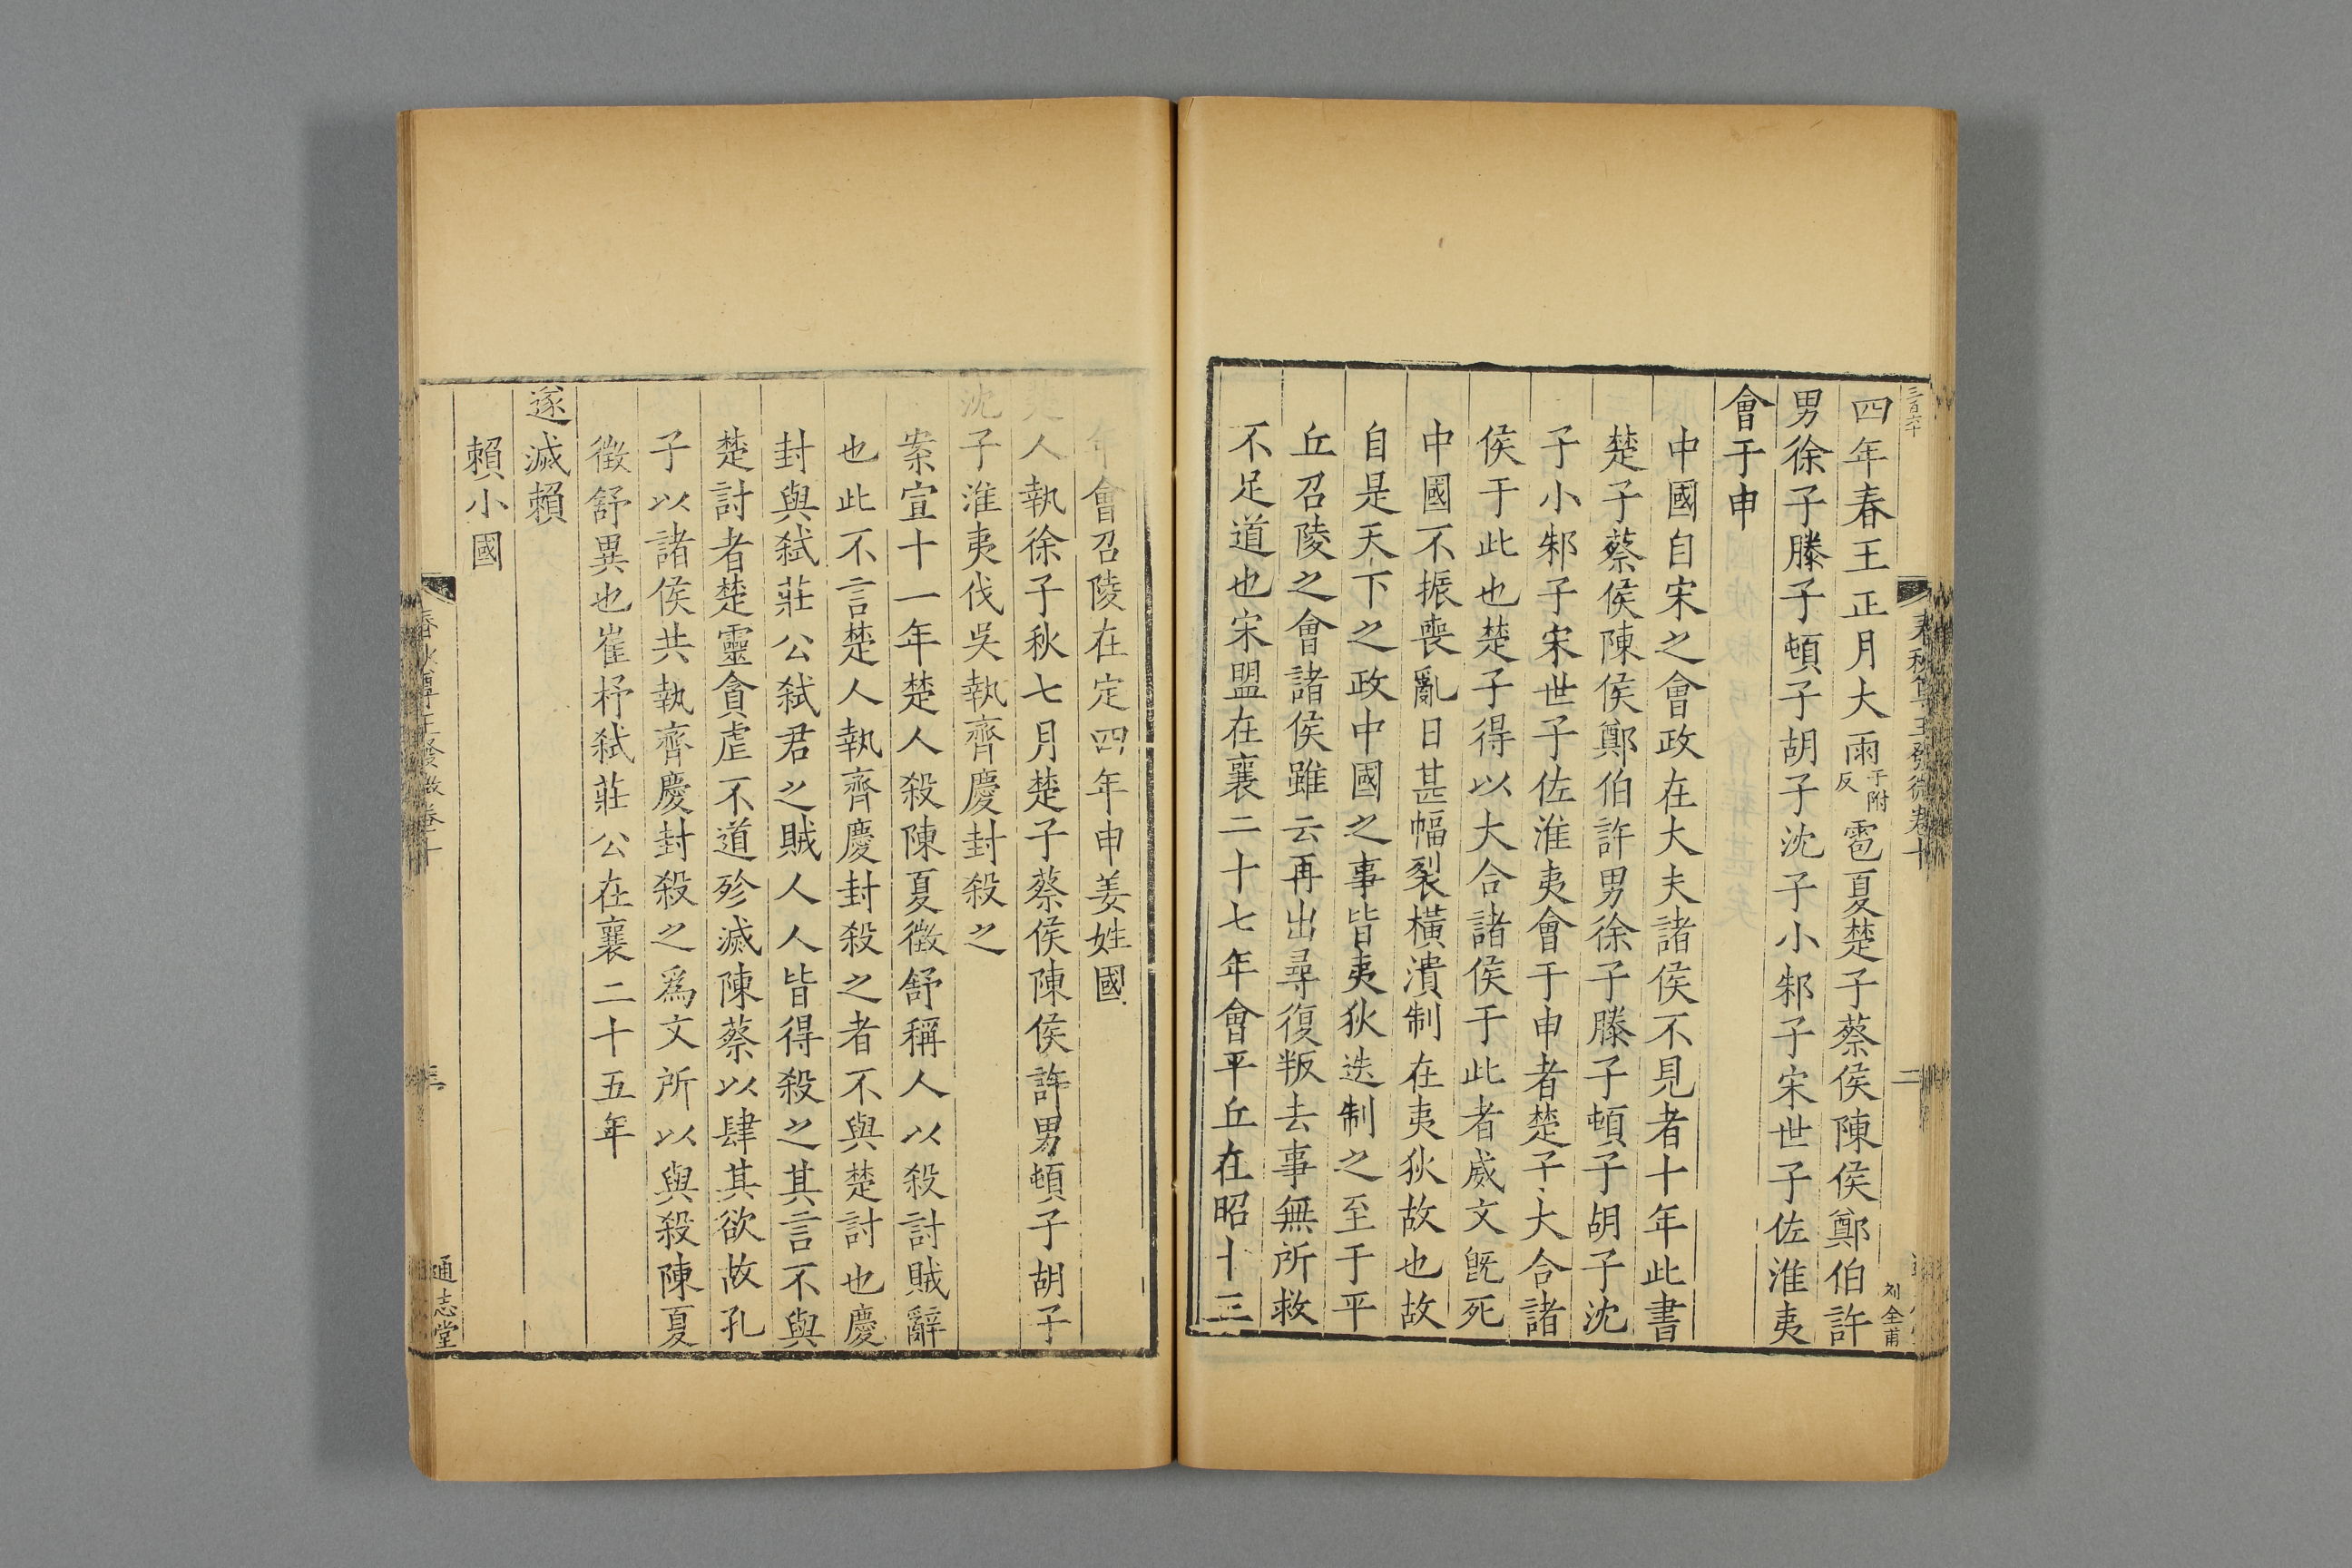 三百六十
四年春王正月大雨于附反雹夏楚子蔡侯陳侯鄭伯許
男徐子滕子頓子胡子沈子小邾子宋世子佐淮夷
會于申
中國自宋之會政在大夫諸侯不見者十年此書
楚子蔡侯陳侯鄭伯許男徐子滕子頓子胡子沈
子小邾子宋世子佐淮夷會于申者楚子大合諸
侯于此也楚子得以大合諸侯于此者威文既死
中國不振喪亂日甚幅裂橫潰制在夷狄故也故
自是天下之政中國之事皆夷狄迭制之至于平
丘召陵之會諸侯雖云再出尋復叛去事無所救
不足道也宋盟在襄二十七年會平丘在昭十三
春秋尊王發微卷十
二
刘全甫
年會召陵在定四年申姜姓國
人執徐子秋七月楚子蔡侯陳侯許男頓子胡子
沈子淮夷伐吳執齊慶封殺之
案宣十一年楚人殺陳夏徵舒稱人以殺討賊辭
也此不言楚人執齊慶封殺之者不與楚討也慶
封與弒莊公弒君之賊人人皆得殺之其言不與
楚討者楚靈貪虐不道殄滅陳蔡以肆其欲故孔
子以諸侯共執齊慶封殺之爲文所以與殺陳夏
徵舒異也崔杼弒莊公在襄二十五年
遂滅賴
賴小國
春秋尊王發微卷十
三
通志堂